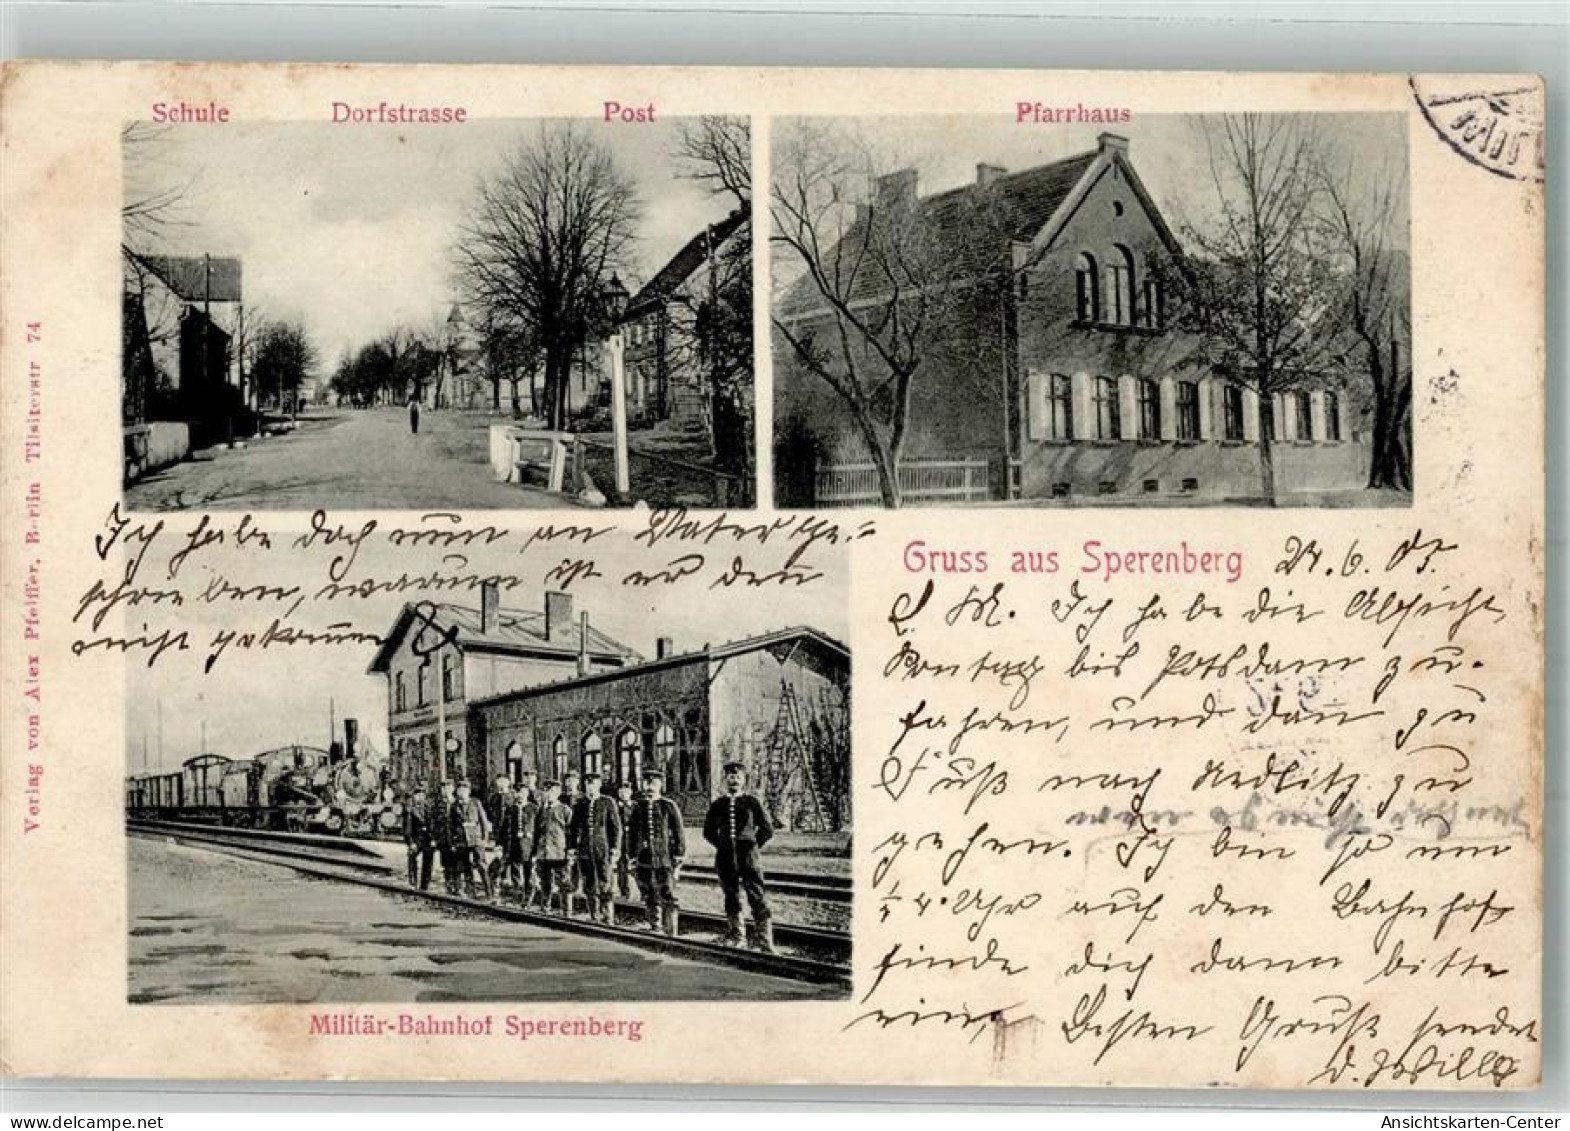 Schule Dorfstrasse Post
Pfarrhaus
Verlag von Alex Pfeiffer, Berlin Tilsiterstr 74
Ich habe doch nun an Vater ge=
schrieben, warum ist er den
nicht gekommen
Gruss aus Sperenberg 24.6.05.
L M. Ich habe die Absicht
Sontag bis Potsdam zu-
fahren, und dan zu
Fuß nach Nedlitz zu
gehen. Ich bin so um
1/4 4. Uhr auf den Bahnhof
finde dich dann bitte
ein, Besten Gruß sendet
d. Willy
Militär-Bahnhof Sperenberg
www.delcampe.net
Ansichtskarten-Center